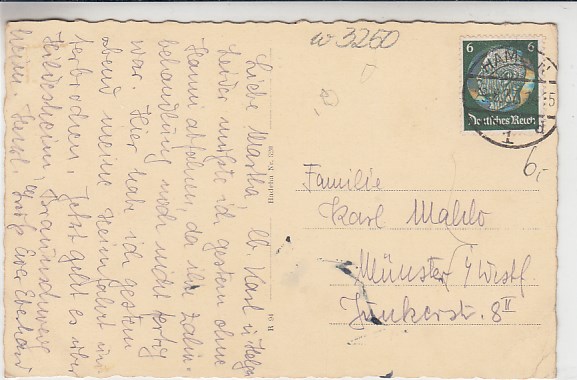 w 3250
6 6
HAMELN
Deutsches Reich
1 d
6,-
Liebe Martha, lb. Karl u. Helga
Leider mußte ich gestern ohne
Hanni abfahren, da ihre Zahn-
behandlung noch nicht fertig
war. Hier hab ich gestern
abend meine Heimfahrt un-
terbrochen. Jetzt geht es über
Hildesheim, Braunschweig
heim. Herzl. Grüße Eva
Familie
Karl Mahlo
Münster i/Westf.
Junkerstr. 8 II